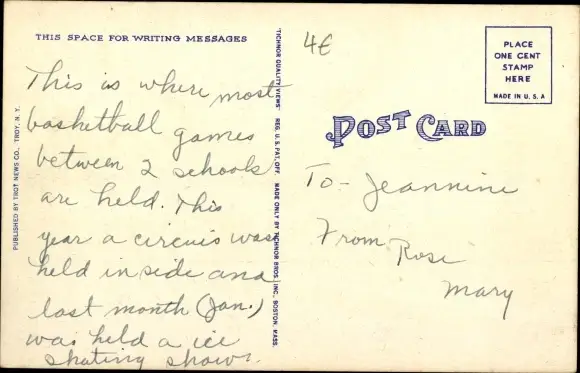 THIS SPACE FOR WRITING MESSAGES
This is where most
basketball games
between 2 schools
are held. This
year a circuis was
held inside and
last month (Jan.)
was held a ice
skating show.
PUBLISHED BY TROY NEWS CO., TROY, N. Y.
"TICHNOR QUALITY VIEWS" REG. U. S. PAT. OFF. MADE ONLY BY TICHNOR BROS. INC., BOSTON, MASS.
4¢
PLACE
ONE CENT
STAMP
HERE
MADE IN U. S. A
POST CARD
To - Jeannine
From Rose
Mary